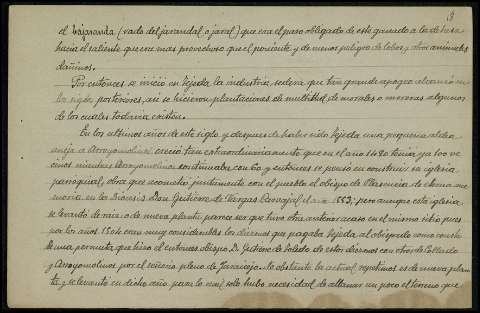 3
el Vajaranda (vado del jarandal, o jaral) que era el paso obligado de este ganado a la dehesa
hacia el saliente que era mas provechoso que el poniente, y de menos peligro de lobos, y otros animales
dañinos.
Por entonces se inició en Tejeda la industria sedera que tan grande apogeo alcanzó en
los siglos posteriores, asi se hicieron plantaciones de multitud de morales o moreras algunos
de los cuales todavia existen.
En los últimos años de este siglo, y despues de haber sido Tejeda una pequeña aldea
aneja a Arroyomolinos creció tan extraordinariamente que en el año 1480 tenia ya 100 ve
cinos mientras Arroyomolinos continuaba con 60 y entonces se pensó en construir su iglesia
parroquial, obra que acometió juntamente con el pueblo el obispo de Plasencia de eterna me
moria en la Diócesis Don Gutierre de Vargas Carvajal el año 1553; pero aunque esta iglesia
se levantó de raiz o de nueva planta parece ser que hubo otra anterior acaso en el mismo sitio pues
por los años 1504 eran muy considerables los diezmos que pagaba Tejeda al obispado como consta
de una permuta que hizo el entonces obispo D. Gutierre de Toledo de estos diezmos con otros de Collado
y Arroyomolinos por el señorio pleno de Jaraicejo. No obstante la actual repetimos es de nueva plan
ta y se levantó en dicho año para lo cual solo hubo necesidad de allanar un poco el terreno que